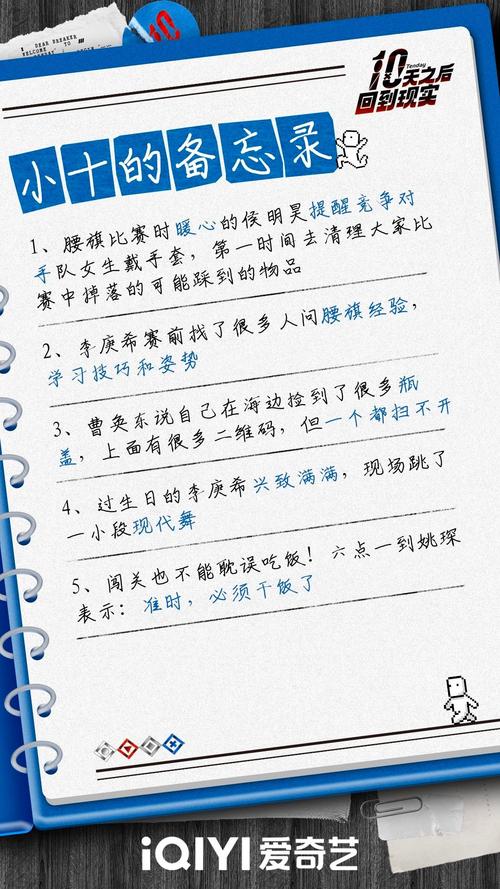 DEAR BEAKER
WELCOME TO
10
10天之后
Tenday
回到现实
小十的备忘录
1、腰旗比赛时暖心的侯明昊提醒竞争对
手队女生戴手套，第一时间去清理大家比
赛中掉落的可能踩到的物品
2、李庚希赛前找了很多人问腰旗经验，
学习技巧和姿势
3、曹奂东说自己在海边捡到了很多瓶
盖，上面有很多二维码，但一个都扫不开
4、过生日的李庚希兴致满满，现场跳了
一小段现代舞
5、闯关也不能耽误吃饭！六点一到姚琛
表示：准时，必须干饭了
iQIYI 爱奇艺